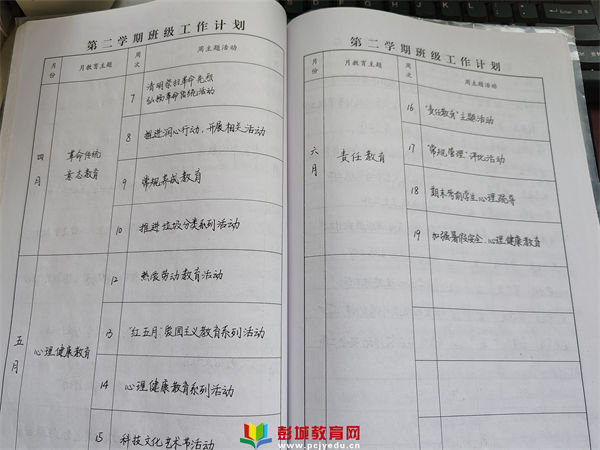 第二学期班级工作计划
月份 月教育主题 周次 周主题活动
四月 革命传统
意志教育
7 清明祭扫革命先烈
弘扬革命传统活动
8 推进润心行动,开展相关活动
9 常规养成教育
10 推进垃圾分类系列活动
五月 心理健康教育
12 热爱劳动教育活动
13 "红五月"爱国主义教育系列活动
14 心理健康教育系列活动
15 科技文化艺术节活动
第二学期班级工作计划
月份 月教育主题 周次 周主题活动
六月 责任教育
16 "责任教育"主题活动
17 "常规管理"评比活动
18 期末考前学生心理疏导
19 加强暑假安全、心理健康教育
彭城教育网
www.pcjyedu.cn